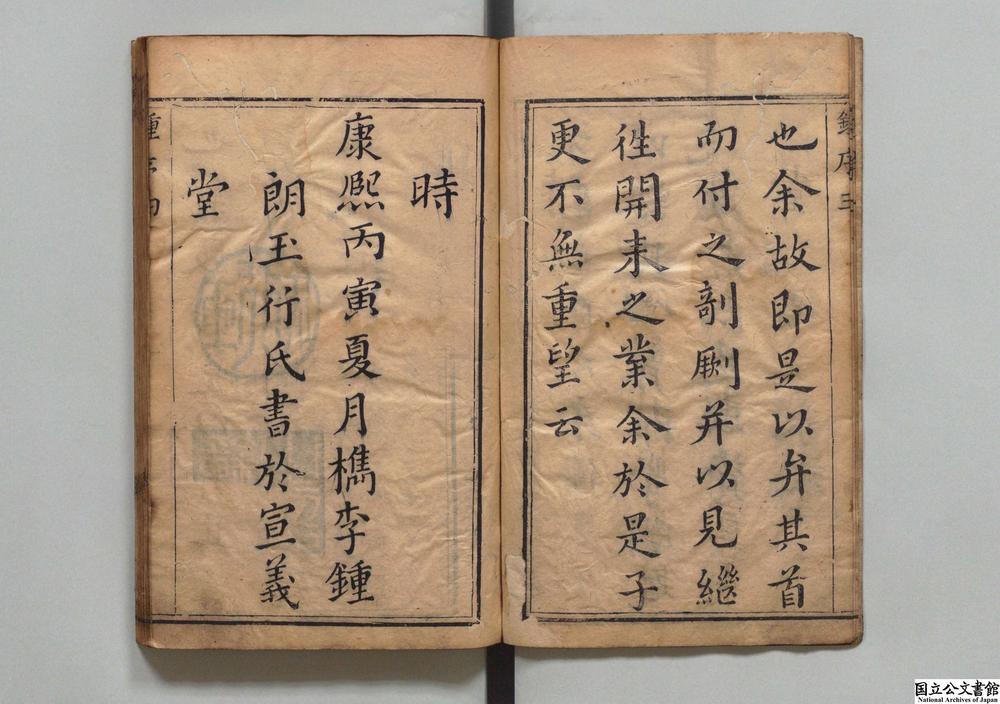 也余故即是以弁其首
而付之剞劂并以見繼
徃開来之業余於是子
更不無重望云
時
康熙丙寅夏月檇李鍾
朗玉行氏書於宣義
堂
鍾序 三
国立公文書館
National Archives of Japan